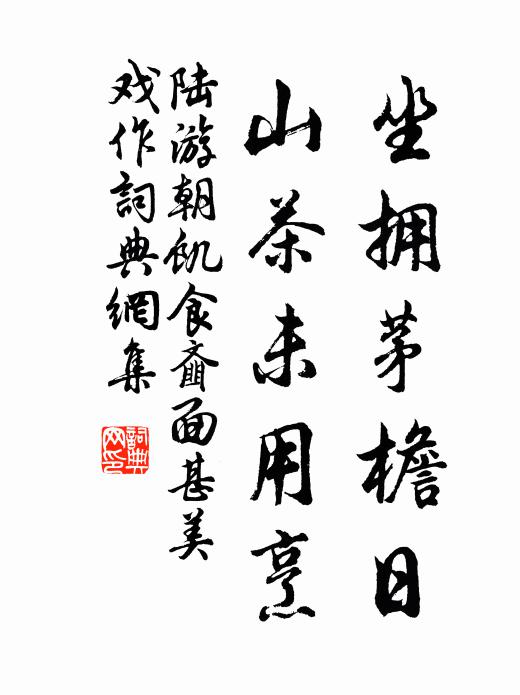 坐拥茅檐日
山茶未用烹
陆游朝飢食齑面甚美
戏作詞典網集
詞典网印